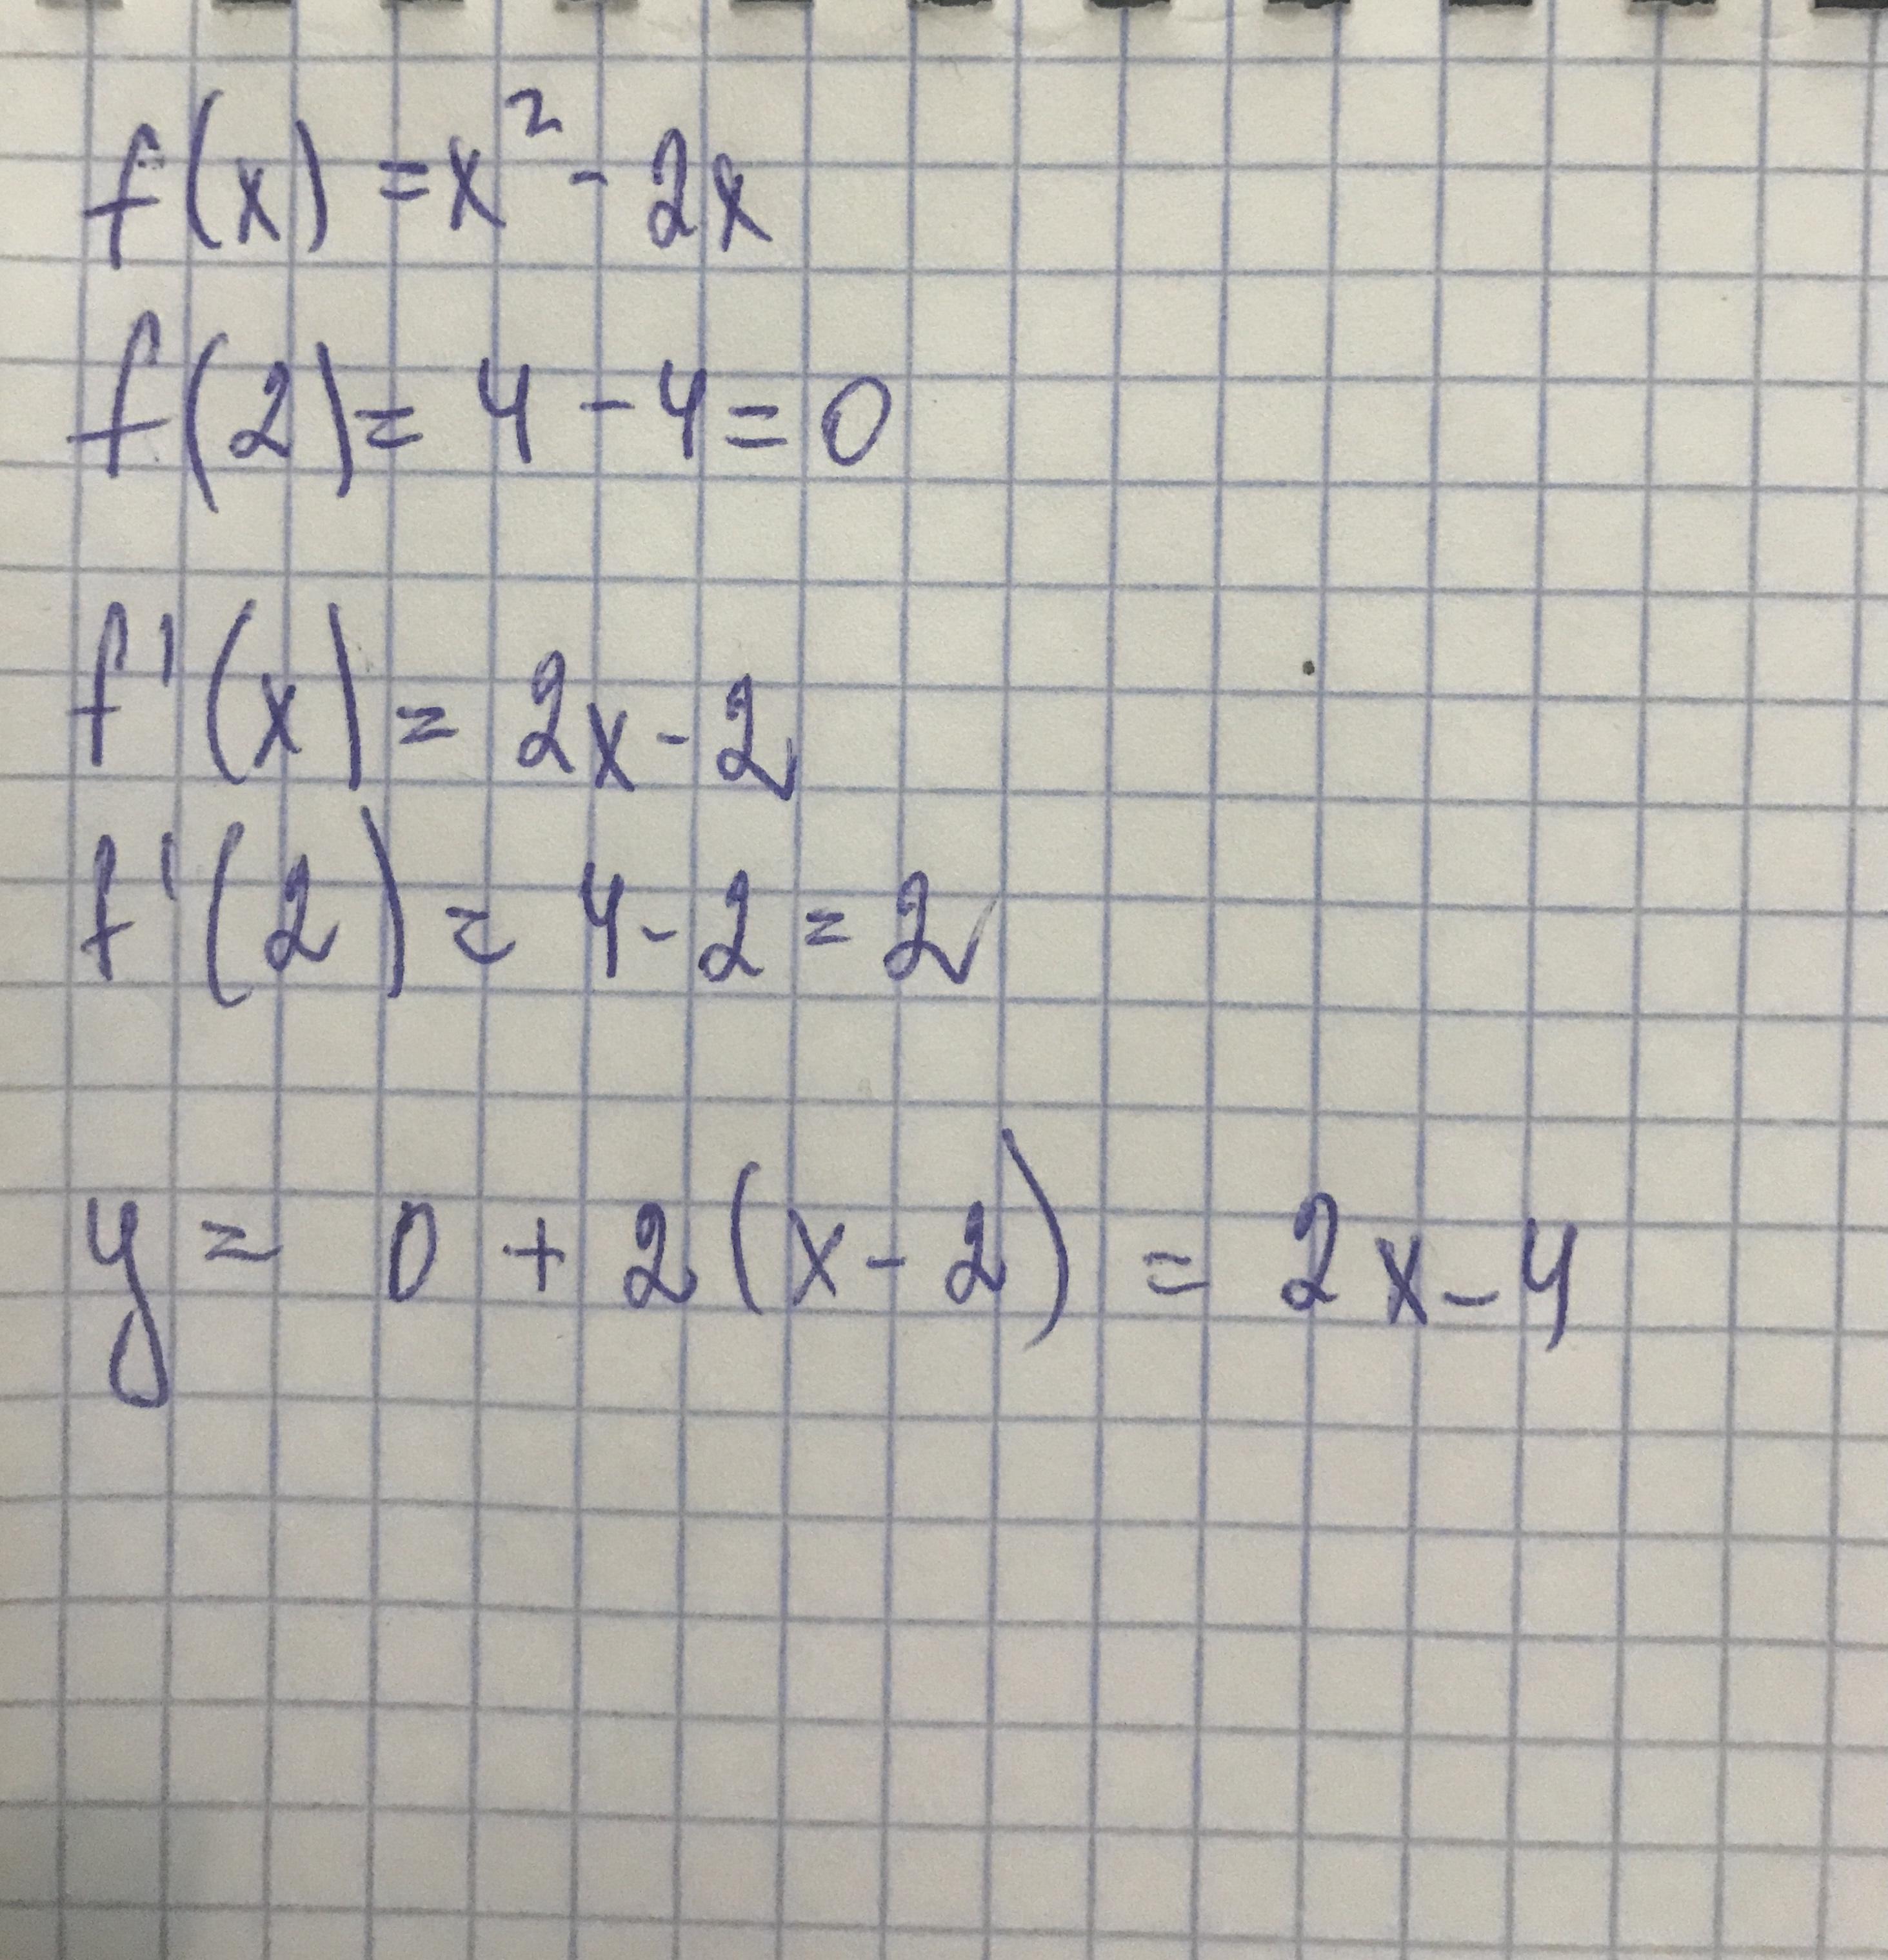 f(x) = x² - 2x
f(2) = 4 - 4 = 0
f'(x) = 2x - 2
f'(2) = 4 - 2 = 2
y = 0 + 2(x - 2) = 2x - 4